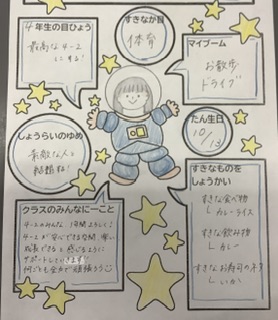 4年生の目ひょう
最高な4-2
にする!
すきなか目
体育
マイブーム
お散歩
ドライブ
しょうらいのゆめ
素敵な人と
結婚ね!
たん生日
10/13
すきなものを
しょうかい
すきな食べ物
└ カレーライス
すきな飲み物
└
すきなお寿司のネタ
└ いか
クラスのみんなに一こと
4-2のみんな 1年間よろしく!
4-2が安心できる空間、楽しい
成長できると感じるように
サポートしていきます!
何ごとも全力で頑張ろう